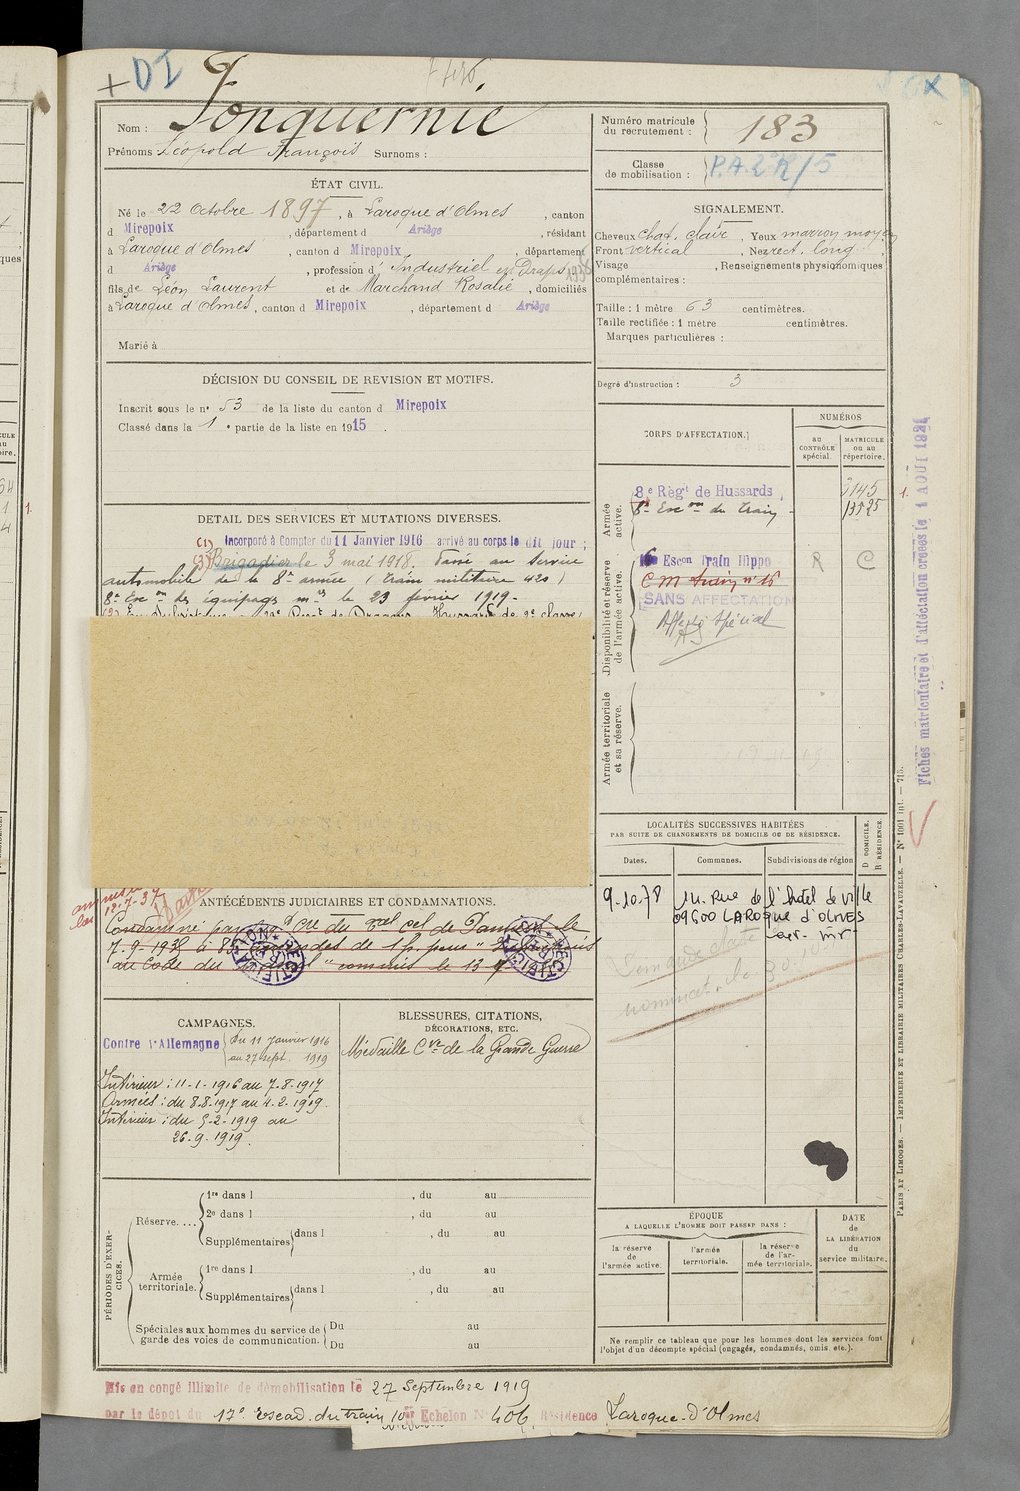 + DI
Nom : Fonquernie
Prénoms : Léopold François Surnoms :
Numéro matricule du recrutement : 183
Classe de mobilisation : P.A.2°R/5
ÉTAT CIVIL.
Né le 22 Octobre 1897, à Laroque d'Olmes, canton
d Mirepoix, département d Ariège, résidant
à Laroque d'Olmes, canton d Mirepoix, département
d Ariège, profession d' Industriel en Draps 1936
fils de Léon Laurent et de Marchand Rosalie, domiciliés
à Laroque d'Olmes, canton d Mirepoix, département d Ariège
Marié à
SIGNALEMENT.
Cheveux chat. clair, Yeux marron moyen
Front vertical, Nez rect. long
Visage , Renseignements physionomiques
complémentaires :
Taille : 1 mètre 63 centimètres.
Taille rectifiée : 1 mètre centimètres.
Marques particulières :
Degré d'instruction : 3
DÉCISION DU CONSEIL DE REVISION ET MOTIFS.
Inscrit sous le n° 53 de la liste du canton d Mirepoix
Classé dans la 1° partie de la liste en 1915.
DETAIL DES SERVICES ET MUTATIONS DIVERSES.
(1) Incorporé à Compter du 11 Janvier 1916 arrivé au corps le dit jour ;
(3) Brigadier le 3 mai 1918. Passé au Service
automobile de la 8e armée (train militaire 420)
8e Esc on des équipages mres le 23 février 1919.
CORPS D'AFFECTATION.
NUMÉROS
AU CONTRÔLE spécial.
MATRICULE OU AU répertoire.
Armée active.
8e Régt de Hussards 3145
8e Esc on du Train 13525
1.
Disponibilité et réserve de l'armée active.
16 Escon Train Hippo R C
C M train n° 16
SANS AFFECTATION
Affecté Spécial
Armée territoriale et sa réserve.
Fiches matriculaire et d'affectation créées le 1 AOUT 1924
LOCALITÉS SUCCESSIVES HABITÉES
PAR SUITE DE CHANGEMENTS DE DOMICILE OU DE RÉSIDENCE.
D DOMICILE.
R RÉSIDENCE.
Dates. Communes. Subdivisions de région
9.10.78 14. Rue de l'hotel de ville
09600 LAROQUE d'OLMES
ANTÉCÉDENTS JUDICIAIRES ET CONDAMNATIONS.
CAMPAGNES.
Contre l'Allemagne du 11 Janvier 1916
au 27 sept. 1919
Intérieur : 11-1-1916 au 7-8-1917
Armées : du 8.8.1917 au 4-2-1919
Intérieur : du 5-2-1919 au
26.9.1919.
BLESSURES, CITATIONS,
DÉCORATIONS, ETC.
Médaille Cve de la Grande Guerre
PÉRIODES D'EXERCICES.
Réserve....
1re dans l , du au
2e dans l , du au
Supplémentaires dans l , du au
Armée territoriale.
1re dans l , du au
Supplémentaires dans l , du au
Spéciales aux hommes du service de
garde des voies de communication.
Du au
Du au
ÉPOQUE
A LAQUELLE L'HOMME DOIT PASSER DANS :
la réserve de l'armée active.
l'armée territoriale.
la réserve de l'armée territoriale.
DATE de LA LIBÉRATION du service militaire.
Ne remplir ce tableau que pour les hommes dont les services font
l'objet d'un décompte spécial (engagés, condamnés, omis, etc.).
PARIS ET LIMOGES. — IMPRIMERIE ET LIBRAIRIE MILITAIRES CHARLES-LAVAUZELLE. — N° 1001 int. — 715.
Mis en congé illimité de démobilisation le 27 Septembre 1919
par le dépôt du 17e escad. du train 10er Echelon N° 406 Résidence Laroque-d'Olmes